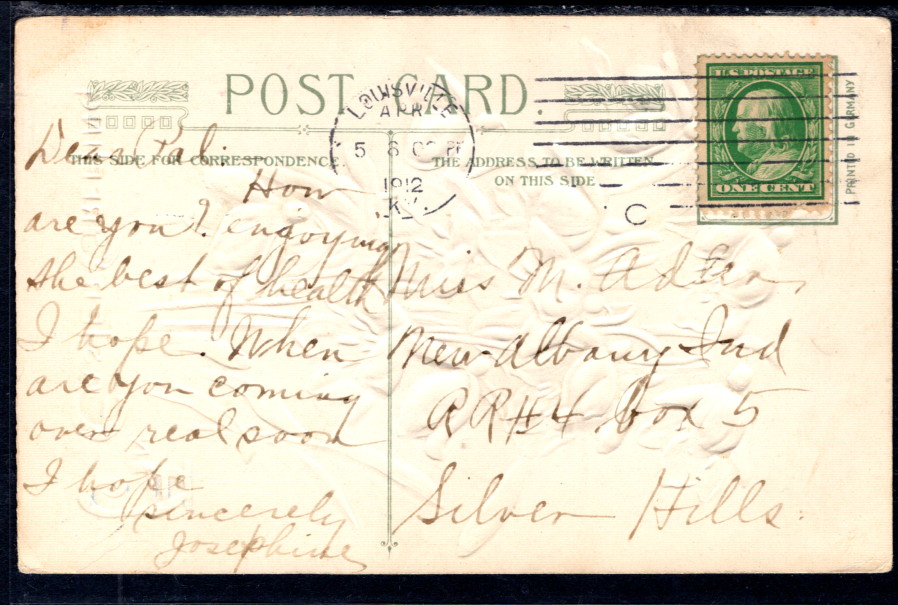 POST CARD.
THIS SIDE FOR CORRESPONDENCE.
THE ADDRESS TO BE WRITTEN
ON THIS SIDE
LOUISVILLE
APR
5
6 00 P
1912
KY.
C
U.S. POSTAGE
ONE CENT
PRINTED IN GERMANY
Dear Pal.
How
are you? enjoying
the best of health
I hope. When
are you coming
over real soon
I hope
sincerely
Josephine
Miss M. Adler
New Albany Ind
RR#4 box 5
Silver Hills.